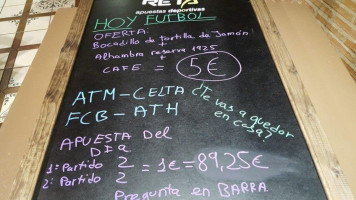 RETA
apuestas deportivas
HOY FUTBOL
OFERTA:
Bocadillo de tortilla de Jamón
+
Alhambra reserva 1925
+
CAFE = 5€
ATM-CELTA
FCB-ATH
¿Te vas a quedar
en casa?
APUESTA DEL
DIA
1: Partido 2
2: Partido 2
= 1€ = 89,25€
Pregunta en BARRA.